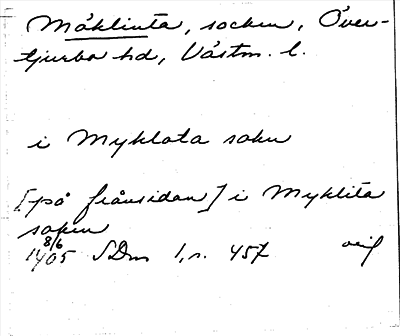 Möklinta, socken, Över-
tjurbo hd, Västm. l.
i Myklota sokn
[på frånsidan] i Myklita
soken
8/6
1405 SDns 1, s. 457 orig